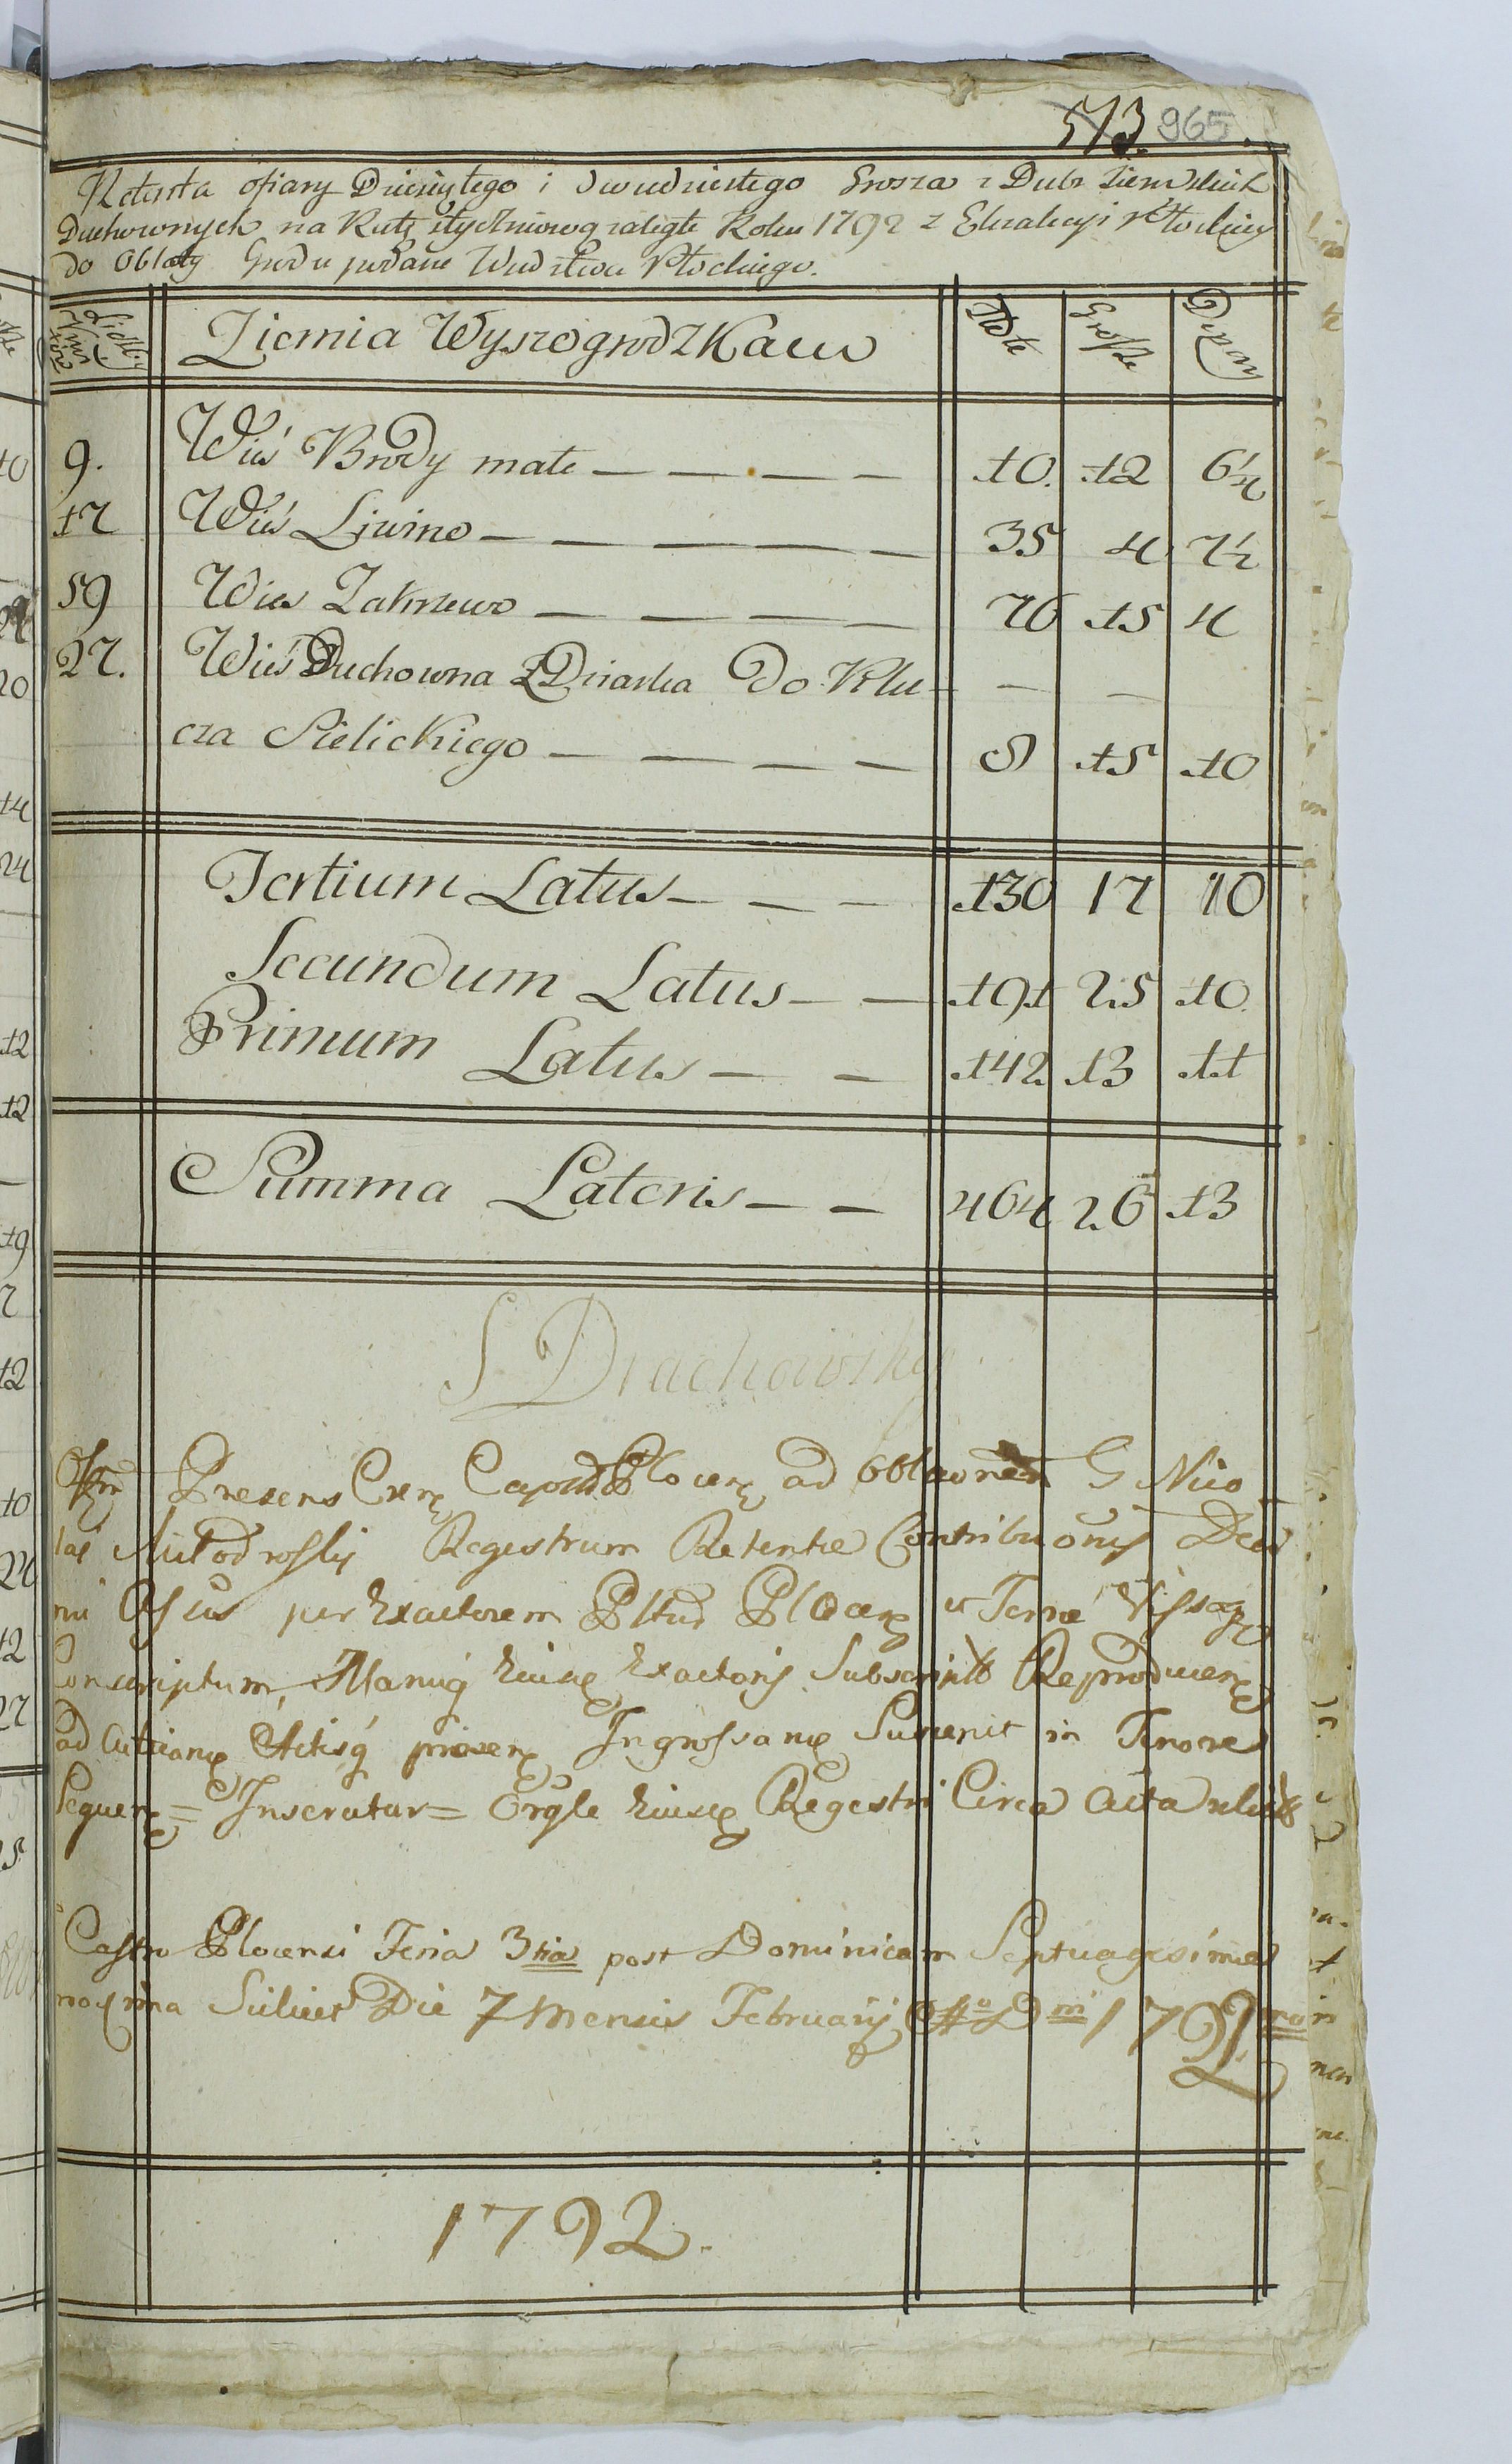 513. 965
Retenta ofiary Dziesiątego i Dwudziestego Grosza z Dubr Ziemskich
Duchownych na Ratę styczniową zaległe Roku 1792 z Exakcyi Płockiey
do Oblaty Grodu podane Wudztwa Płockiego.
Ziemia Wyszogrodzka
Złote Grosze Denary
9. Wieś Brody małe — — — — 10. 12 6½
17 Wieś Liwino — — — — — 35 4 7½
59 Wies Zakrzewo — — — — 76 15 4
27. Wieś Duchowna Dziarka Do Klu — —
cza Sielickiego — — — — 8 15 10
Tertium Latus — — — 130 17 10
Secundum Latus — — 191 25 10.
Primum Latus — — 142 13 11
Summa Lateris — — 464 26 13
S Drachowsky
Presens Plocen ad G Nico
laÿ Regestrum Retentæ Contribuonis Deci
mi per Exactorem Pltus Plocen et Terræ
Conscriptum, Manuq Exactoris Subscript Reproducen
ad Actisq præsen Ingrossand in Tenore
Sequen = Inseratur = Orgle Regestri Circa Acta
Castro Plocensi Feria 3tia post Dominicam Septuagesimæ
proxima Scilicet Die 7 Mensis Februarij Dni 1792
1792.